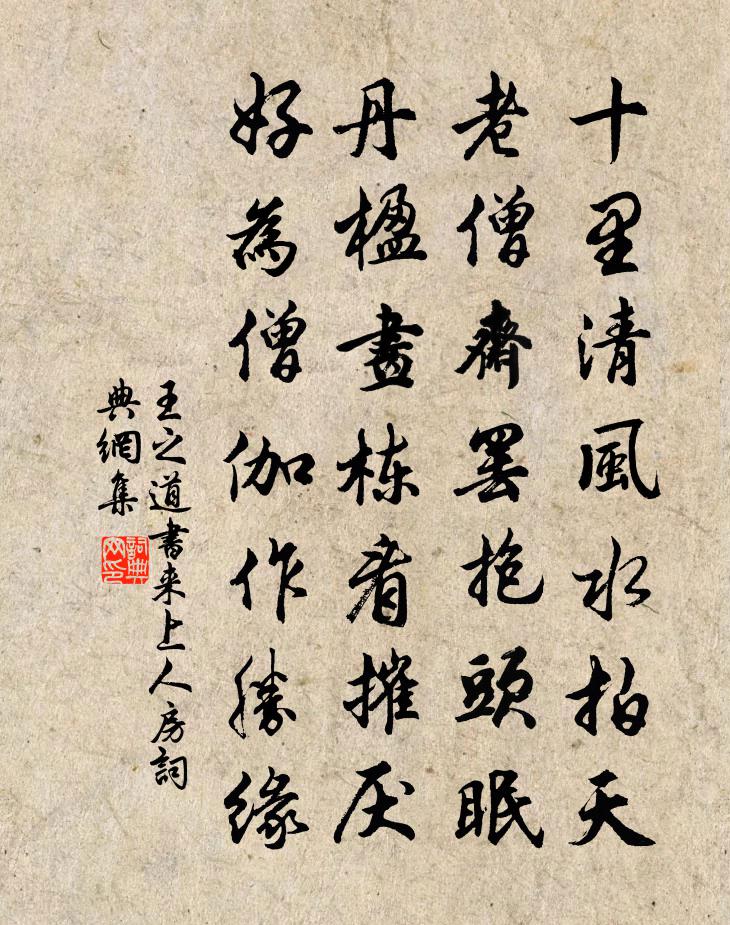 十里清風水拍天
老僧齋罢抱頭眠
丹楹畫栋看摧厌
好為僧伽作勝緣
王之道書来上人房詞
典網集
詞典
网印